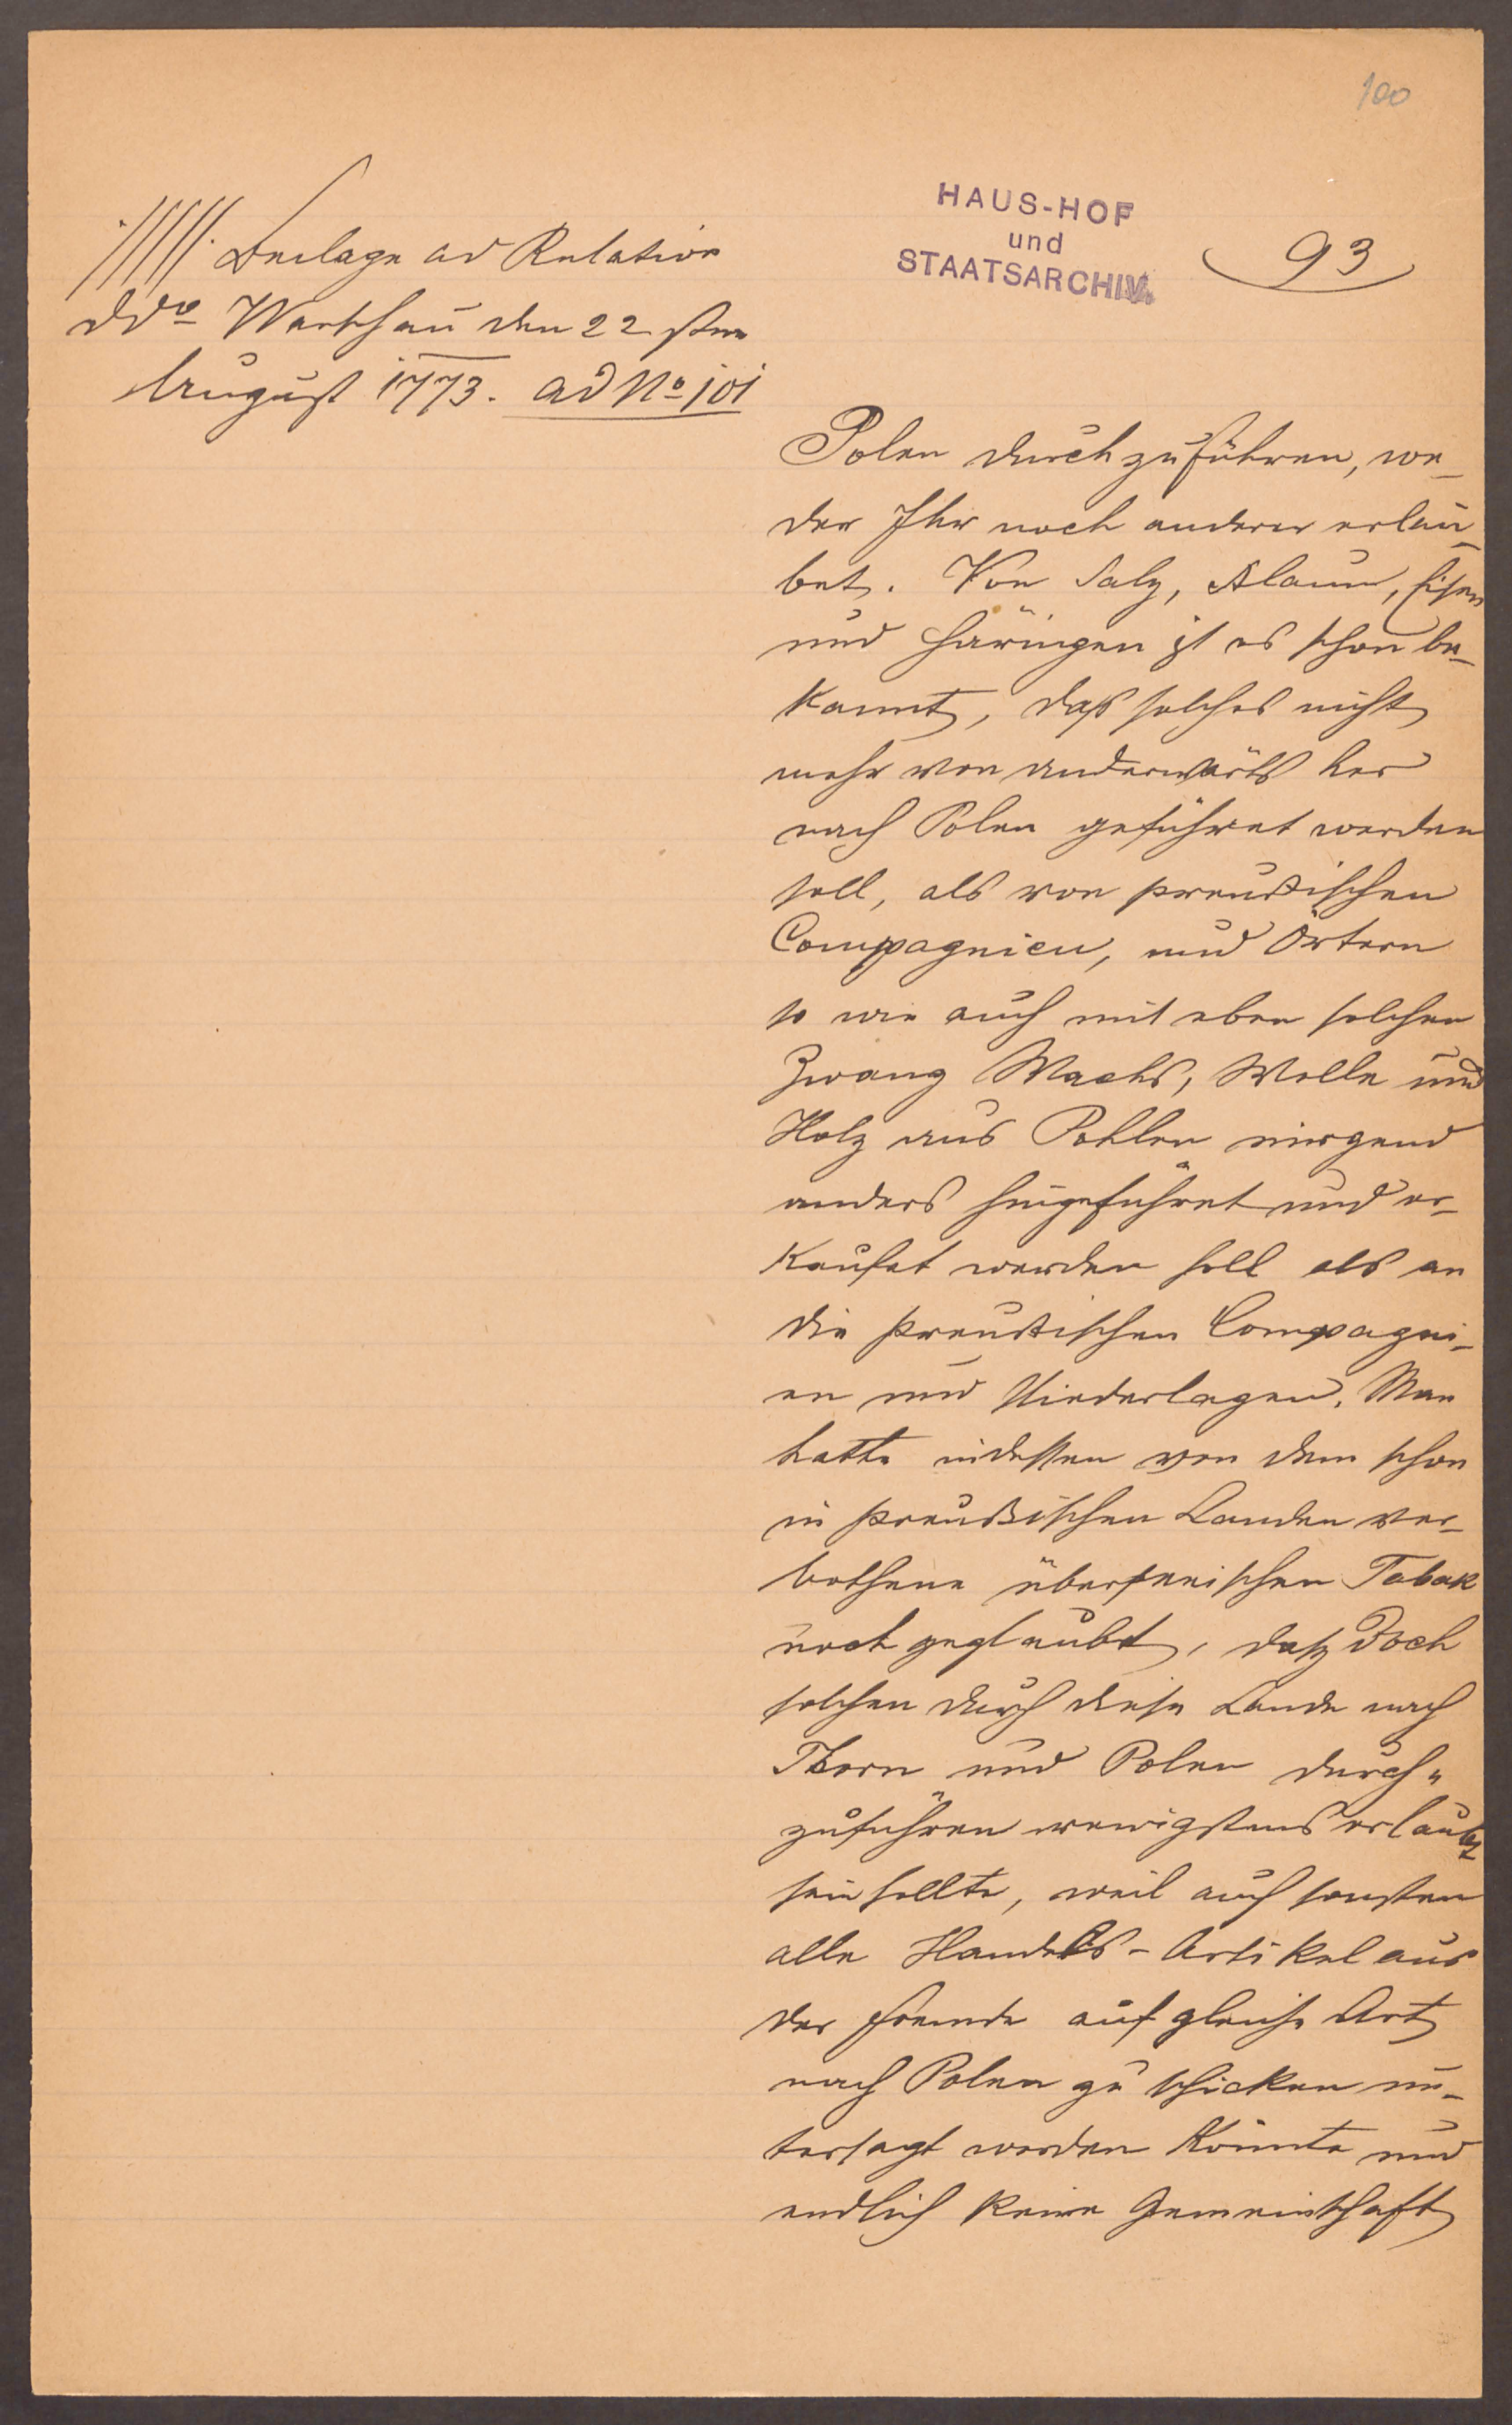 100
HAUS-HOF
und
STAATSARCHIV.
93
Beilage ad Relation
ddo Warschau den 22. sten
August 1773. ad No 101
Polen durchzuführen, we-
der Ihr noch anderer erlau-
bet. Von Salz, Alaun, Eisen
und Häringen ist es schon be-
kannt, daß solches nicht
mehr von anderwärts her
nach Polen geführet werden
soll, als von preußischen
Compagnien, und Örtern
so wie auch mit eben solchen
Zwang Wachs, Wolle und
Holz aus Pohlen nirgend
anders hingeführet und er-
kaufet werden soll als an
die preußischen Compagni-
en und Niederlagen. Man
hatte indessen von dem schon
in preußischen Landen ver-
bothene überseeischen Tabak
noch geglaubt, daß doch
solchen durch diese Lande nach
Thorn und Polen durch-
zuführen wenigstens erlaubt
sein sollte, weil auch sonsten
alle Handels-Artikel aus
der Fremde auf gleiche Art
nach Polen zu schicken un-
tersagt werden könnte und
endlich keine Gemeinschaft